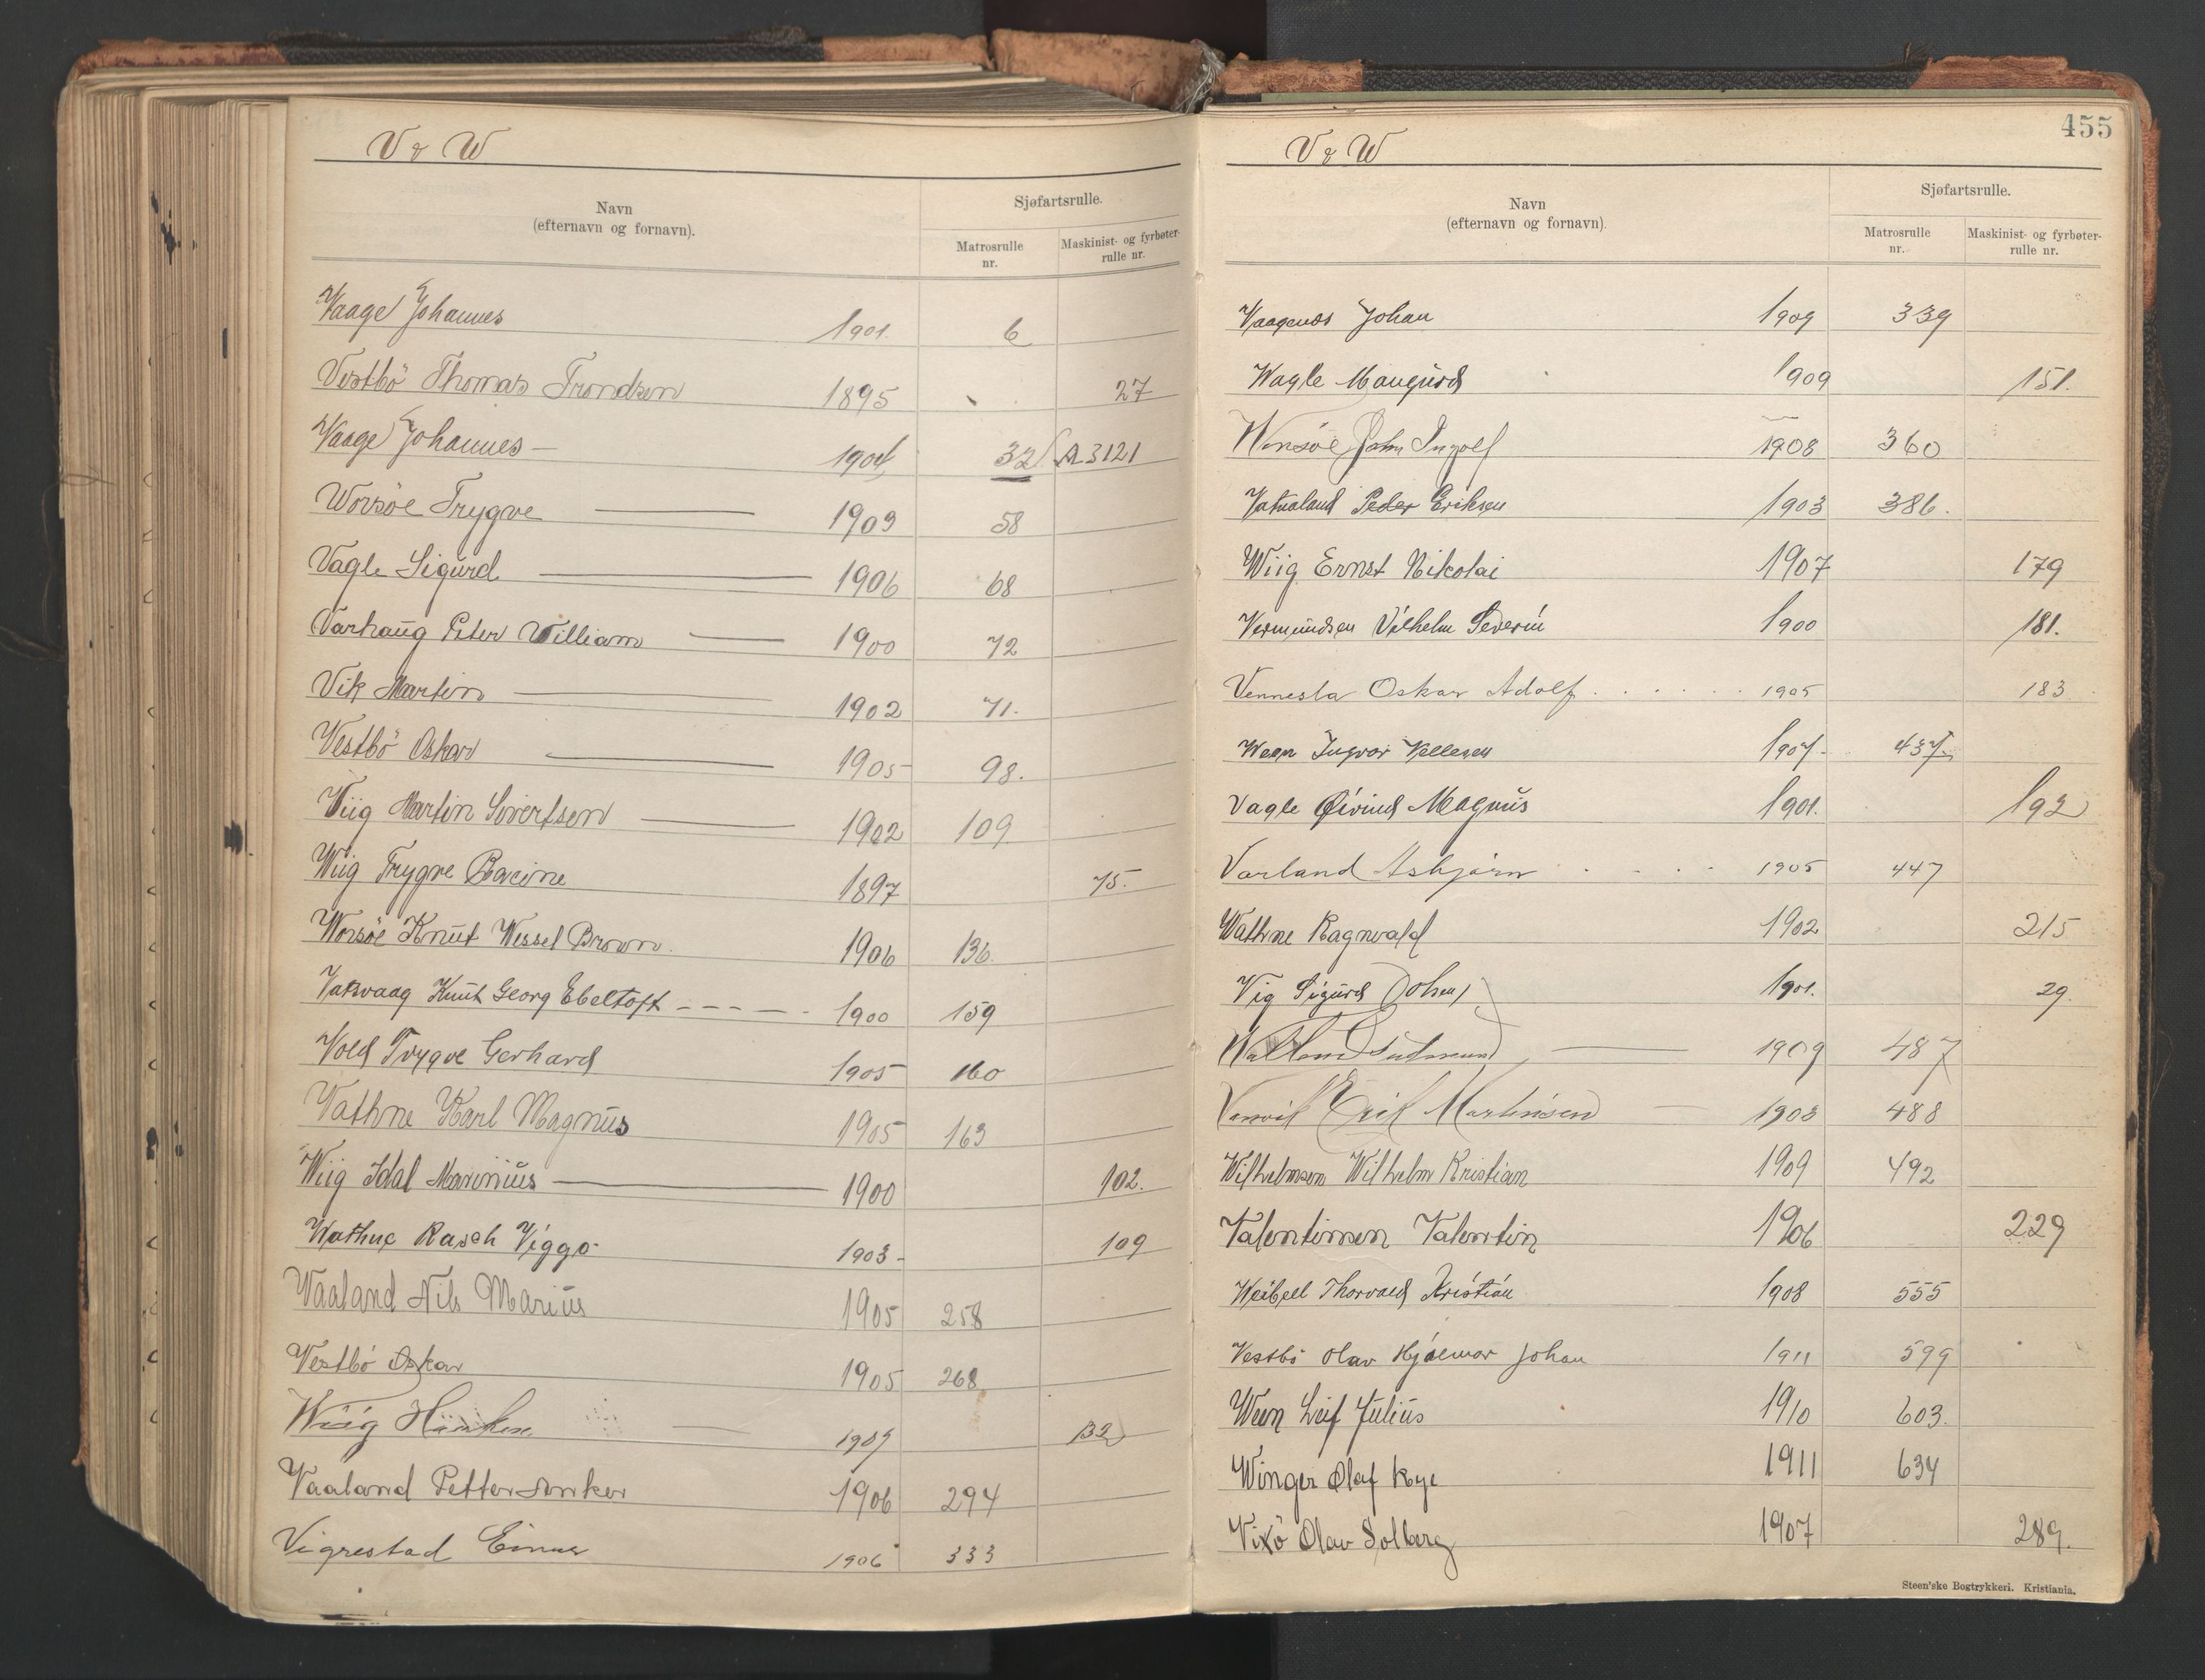 V & W
Navn
(efternavn og fornavn).
Sjøfartsrulle.
Matrosrulle nr.
Maskinist- og fyrbøter-rulle nr.
Vaage Johannes 1901. 6
Vestbö Thomas Trondsen 1895 27
Vaage Johannes — 1904 32 A3121
Worsöe Trygve — 1903 58
Vagle Sigurd — 1906 68
Varhaug Peter William — 1900 72
Vik Martin — 1902 71.
Vestbö Oskar — 1905 98.
Wiig Martin Sivertsen — 1902 109
Wiig Trygve Racine 1897 75.
Worsöe Knut Wessel Brown. 1906 136.
Vatsvaag Knut Georg Ebeltoft - - - - 1900 159
Vold Trygve Gerhard 1905 160
Vathne Karl Magnus 1905 163
Wiig Idal Marinius — 1900 102.
Wathne Rasch Viggo 1903- 109
Vaaland Nils Marius 1905 258
Vestbö Oskar 1905 268
Wiig — 132
Vaaland Petter Anker 1906 294
Vigrestad Einar 1906 333
455
V & W
Navn
(efternavn og fornavn).
Sjøfartsrulle.
Matrosrulle nr.
Maskinist- og fyrbøter-rulle nr.
Vaagenes Johan 1909 339
Wagle Maugurd 1909 151.
Worsöe John Ingolf 1908 360
Vatnaland Peder Eriksen 1903 386.
Wiig Ernst Nikolai 1907 179
Vermundsen Vilhelm Severin 1900 181.
Vennesla Oskar Adolf . . . . . . 1905 183.
Ween Ingvar Vellesen 1907- 437.
Vagle Øivind Magnus 1901. 192
Varland Asbjørn . . . . 1905 447
Wathne Ragnvald 1902 215
Vig Sigurd (Johan) 1901. 29.
— 1909 487
Erik Martinsen — 1903 488
Wilhelmsen Wilhelm Kristian 1909 492
Valentinsen Valentin 1906 229
Weibell Thorvald Kristian 1908 555
Vestbö Olav Hjalmar Johan 1911 599
Ween Leif Julius 1910 603.
Winger Olaf Rye 1911 634
Vixö Olav Solberg 1907 289.
Steen'ske Bogtrykkeri. Kristiania.